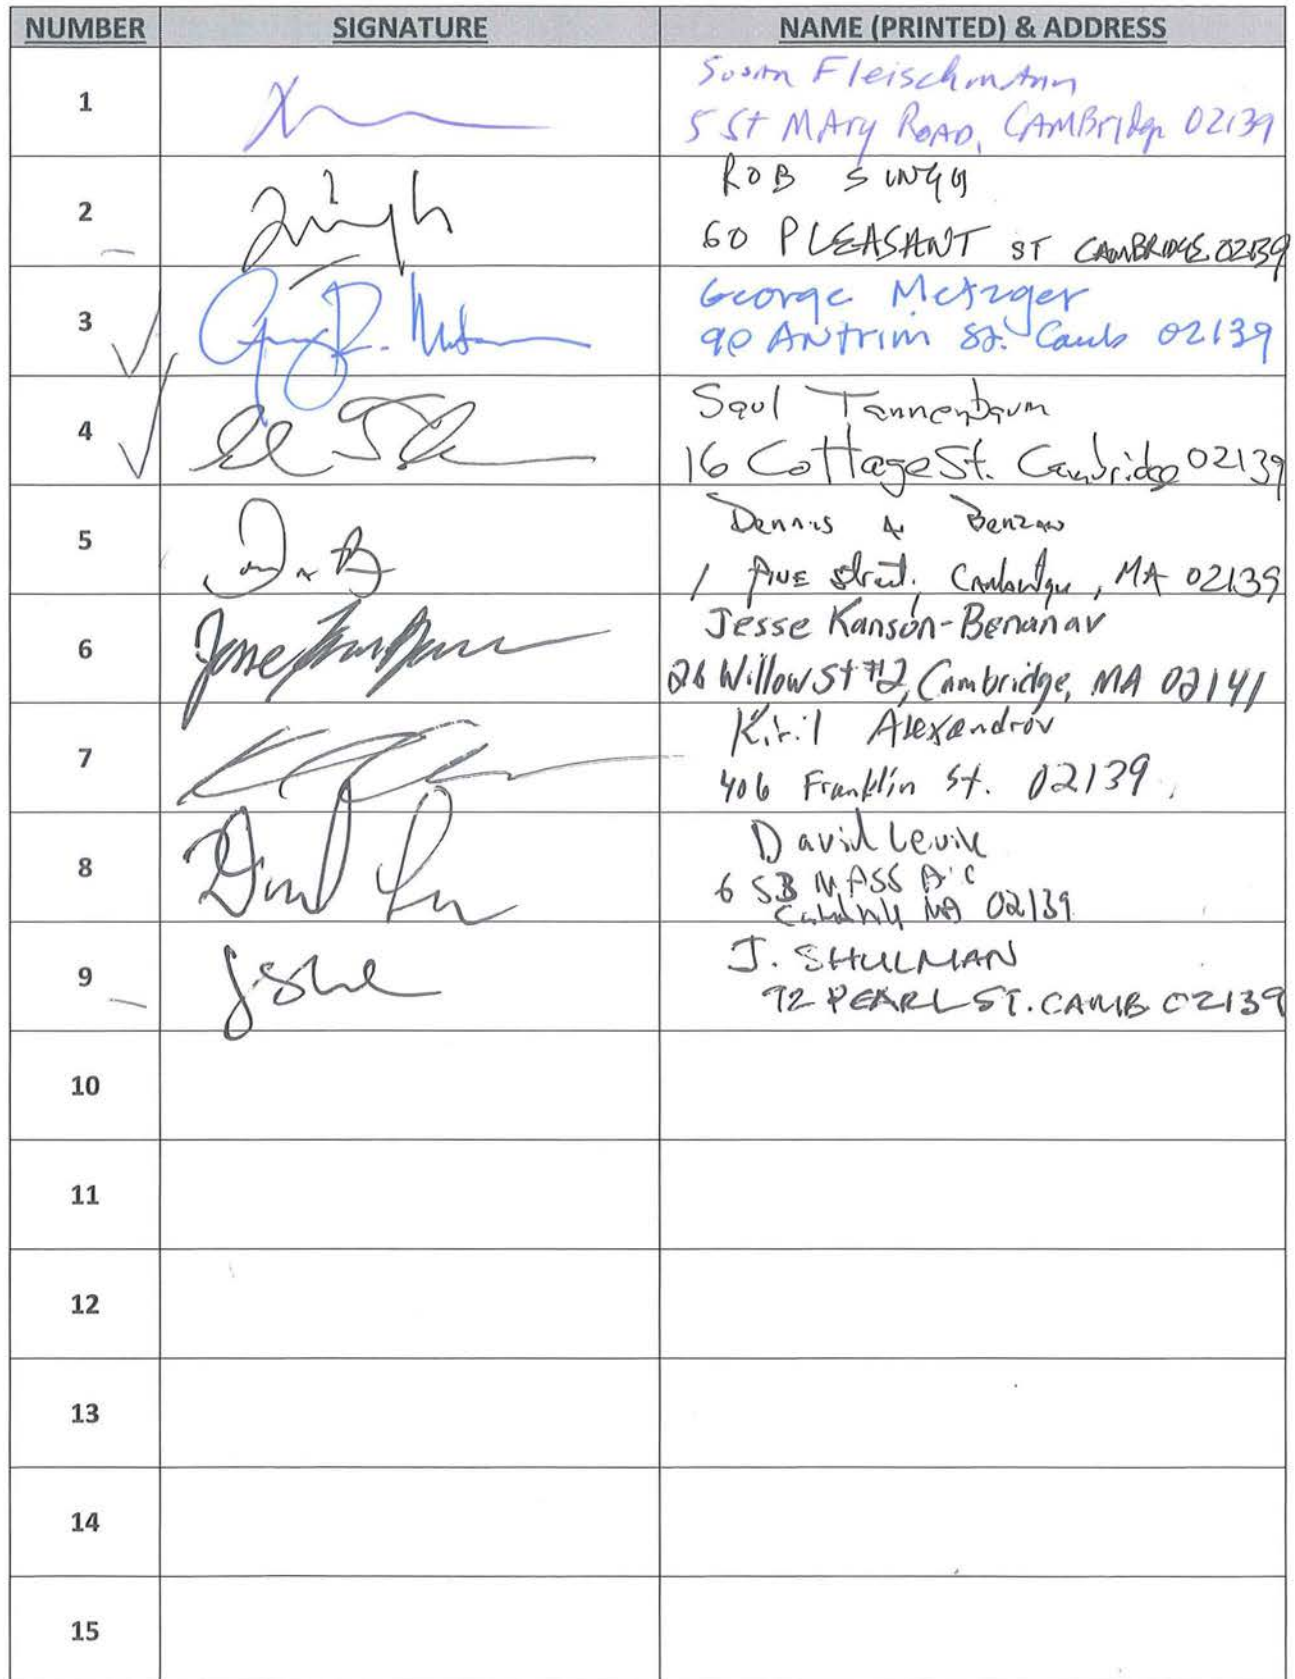 NUMBER SIGNATURE NAME (PRINTED) & ADDRESS
1 Susan Fleischmann
5 St MAry ROAD, CAMBridge 02139
2 Singh ROB SINGH
60 PLEASANT ST CAMBRIDGE 02139
3 George Metzger
90 ANtrim St. Camb 02139
4 Saul Tannenbaum
16 Cottage St. Cambridge 02139
5 Dennis A Benzan
1 PINE street, Cambridge, MA 02139
6 Jesse Kanson-Benanav
26 Willow St #2, Cambridge, MA 02141
7 Kiril Alexandrov
406 Franklin St. 02139
8 David Levine
MASS
MA 02139
9 J. SHULMAN
92 PEARL ST. CAMB 02139
10
11
12
13
14
15